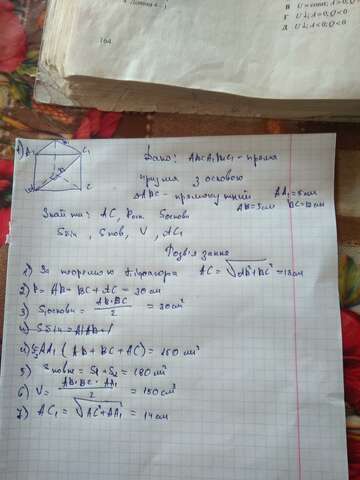 В U = const; A > 0; Q < 0
Г U↓; A = 0; Q < 0
Д U↓; A < 0; Q < 0
164
A₁
C₁
C
Дано: ABCA₁B₁C₁ - пряма
призма з основою
ABC - прямокутний AA₁ = 5 см
AB = 5 см BC = 12 см
Знайти: AC, Pосн Sоснов
Sбіч, Sпов, V, AC₁
Розв'язання
1) За теоремою Піфагора AC = √AB² + BC² = 13 см
2) P = AB + BC + AC = 30 см
3) S₁основи = AB·BC/2 = 30 см²
4) Sбіч = AA₁(AB + BC + AC) = 150 см²
5) Sповне = S₁ + S₂ = 180 см²
6) V = AB·BC·AA₁/2 = 150 см³
7) AC₁ = √AC² + AA₁² = 14 см